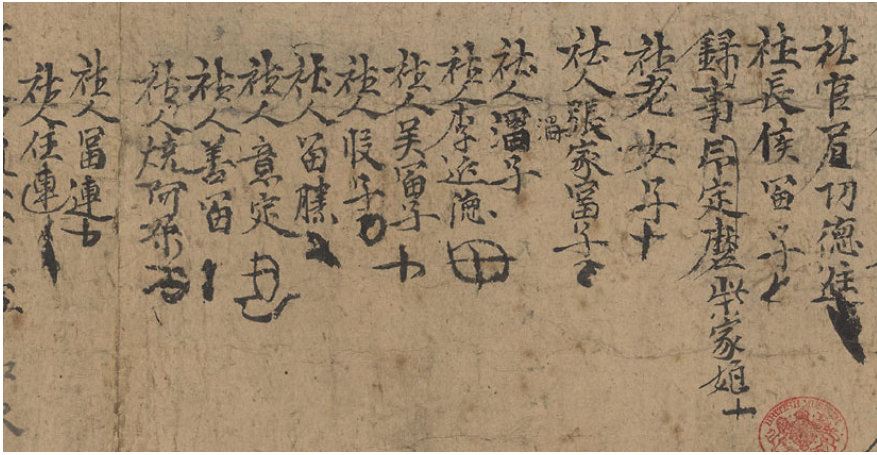 社官尼功德進
社長侯富子
録事印定磨柴家娘
社老女子
社人張家富子
渦
社人渦子
社人李延德
社人吳富子
社人段子
社人富勝
社人意定
社人善富
社人燒阿朵
社人富連
社人住連